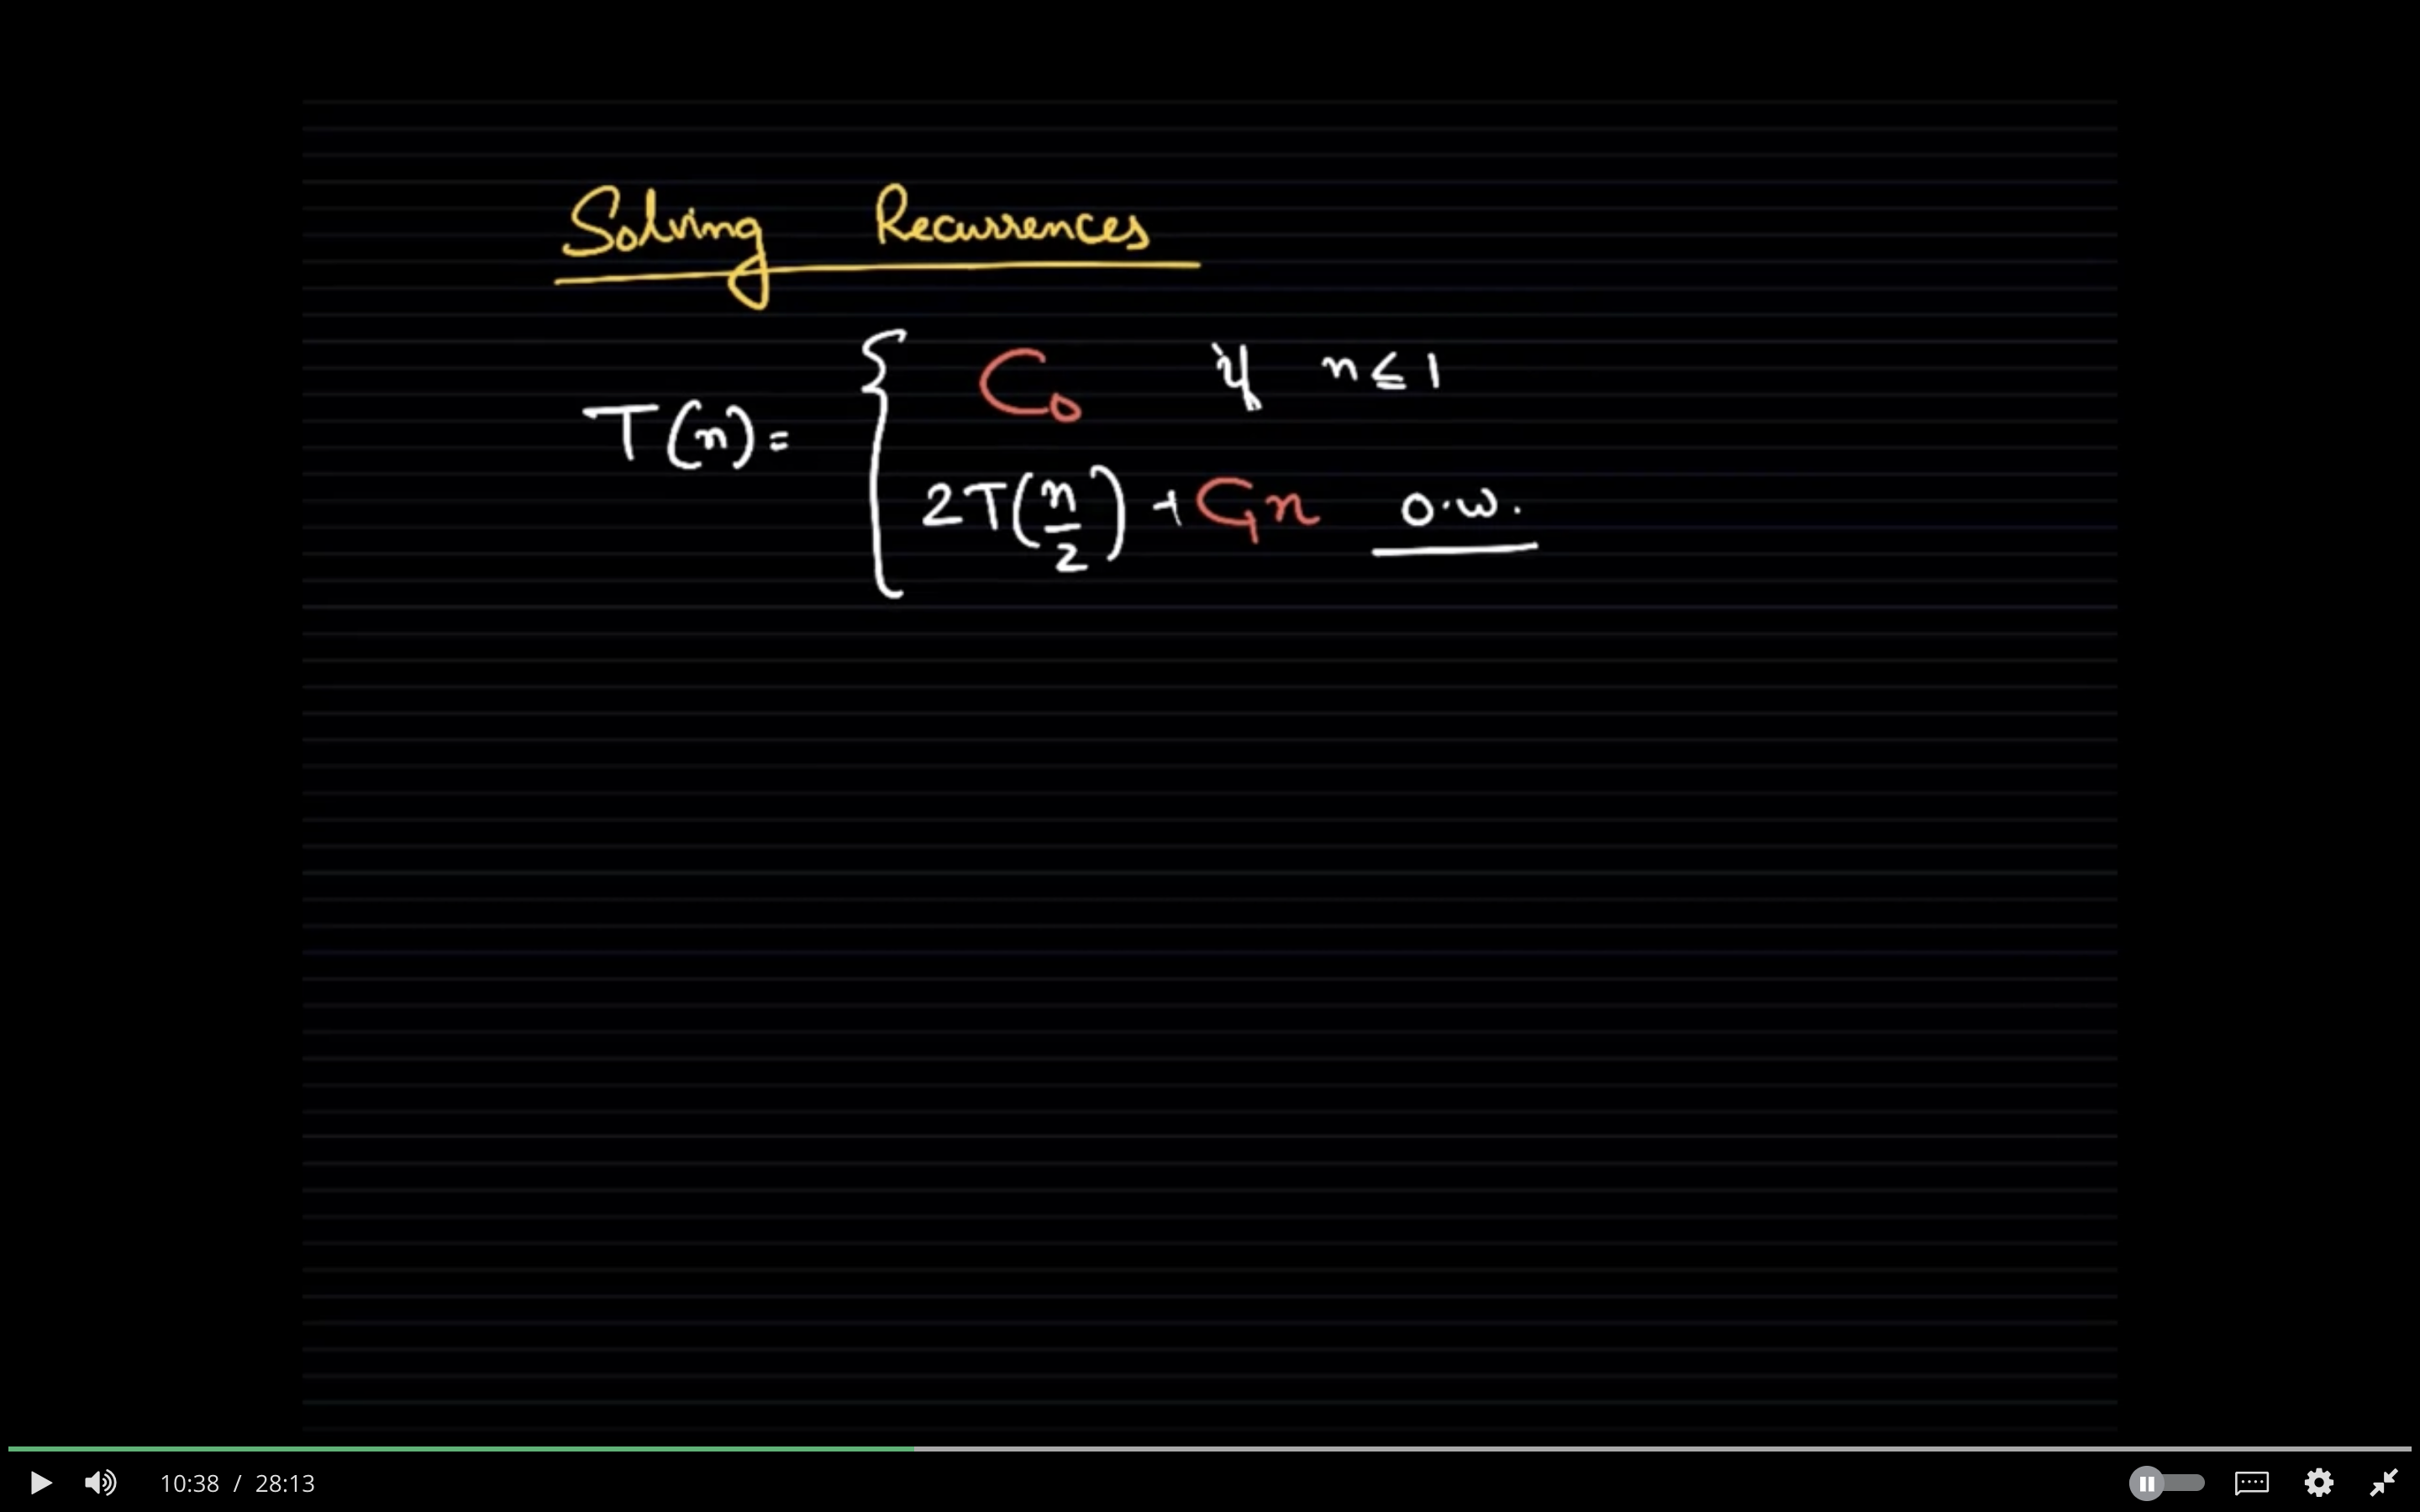 Solving Recurrences
T(n) = { C₀ if n ≤ 1
2T(n/2) + C₁n o.w.
10:38 / 28:13